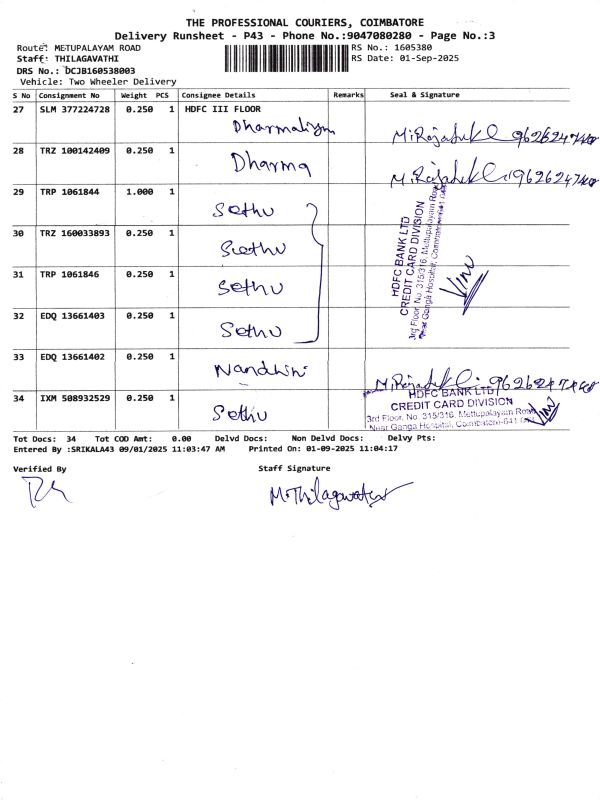 THE PROFESSIONAL COURIERS, COIMBATORE
Delivery Runsheet - P43 - Phone No.:9047080280 - Page No.:3
Route: METUPALAYAM ROAD
RS No.: 1605380
Staff: THILAGAVATHI
RS Date: 01-Sep-2025
DRS No.: DCJB160538003
Vehicle: Two Wheeler Delivery
S No Consignment No Weight PCS Consignee Details Remarks Seal & Signature
27 SLM 377224728 0.250 1 HDFC III FLOOR
28 TRZ 100142409 0.250 1 Dharma
29 TRP 1061844 1.000 1 Sethu
30 TRZ 160033893 0.250 1 Sethu
31 TRP 1061846 0.250 1 Sethu
32 EDQ 13661403 0.250 1 Sethu
HDFC BANK LTD
CREDIT CARD DIVISION
3rd Floor, No. 315/316, Mettupalayam Road,
Near Ganga Hospital, Coimbatore-641
Vinu
33 EDQ 13661402 0.250 1 Nandhini
34 IXM 508932529 0.250 1 Sethu
HDFC BANK LTD
CREDIT CARD DIVISION
3rd Floor, No. 315/316, Mettupalayam Road,
Near Ganga Hospital, Coimbatore-641
Vinu
Tot Docs: 34 Tot COD Amt: 0.00 Delvd Docs: Non Delvd Docs: Delvy Pts:
Entered By :SRIKALA43 09/01/2025 11:03:47 AM Printed On: 01-09-2025 11:04:17
Verified By Staff Signature
M.Thilagavathi